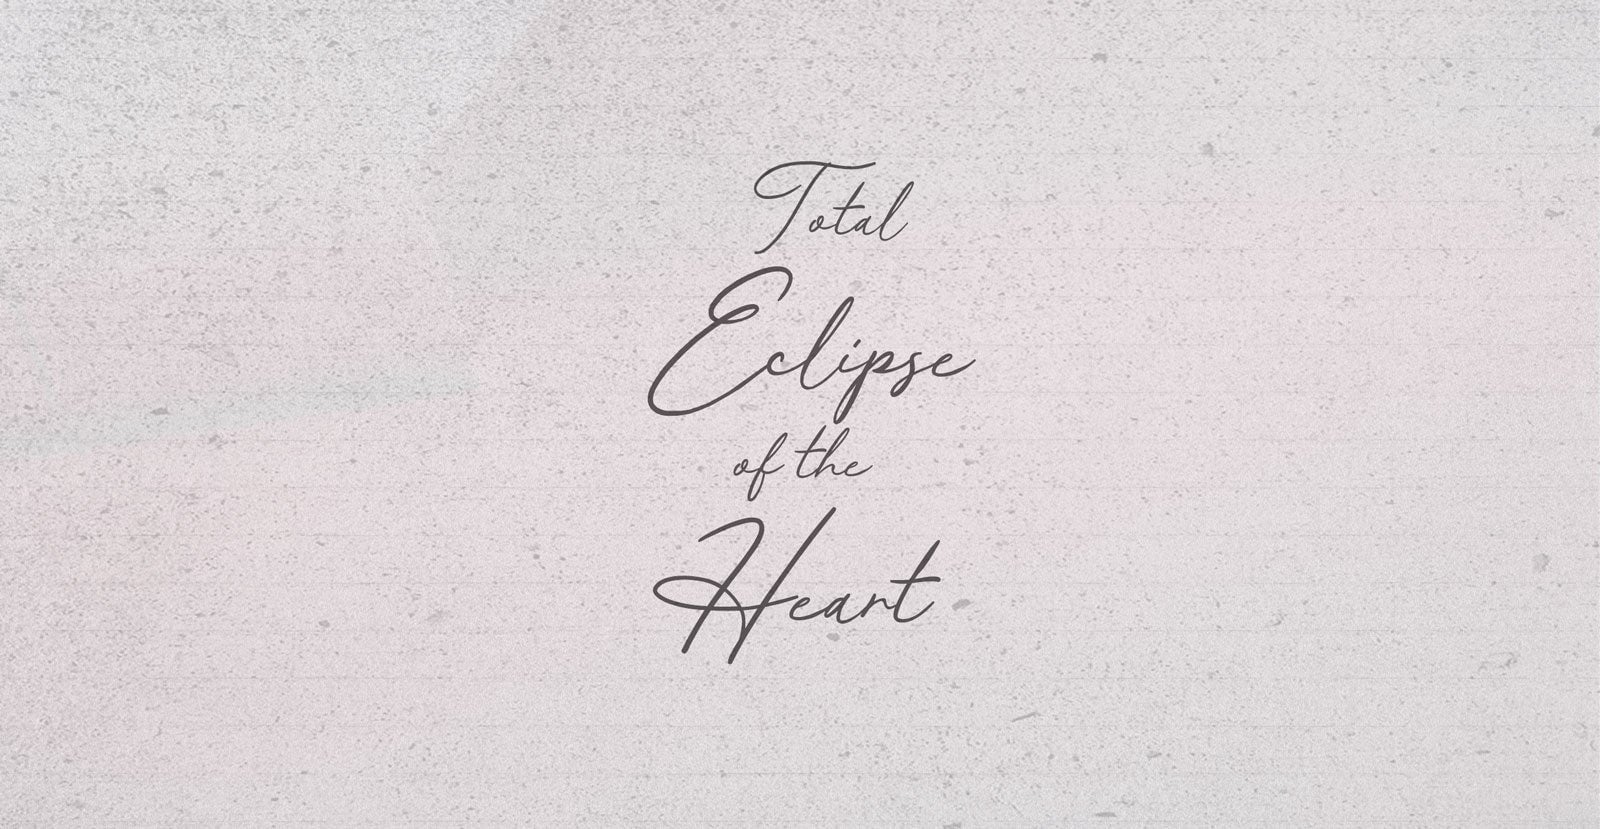 Total
Eclipse
of the
Heart